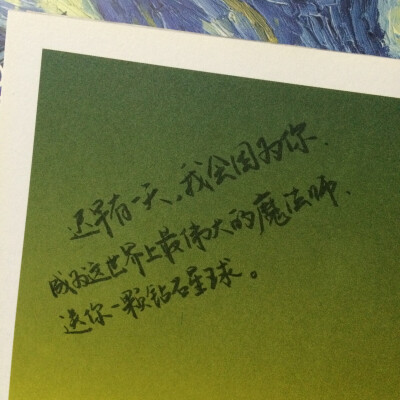 迟早有一天,我会因为你.
成为这世界上最伟大的魔法师.
送你一颗钻石星球。